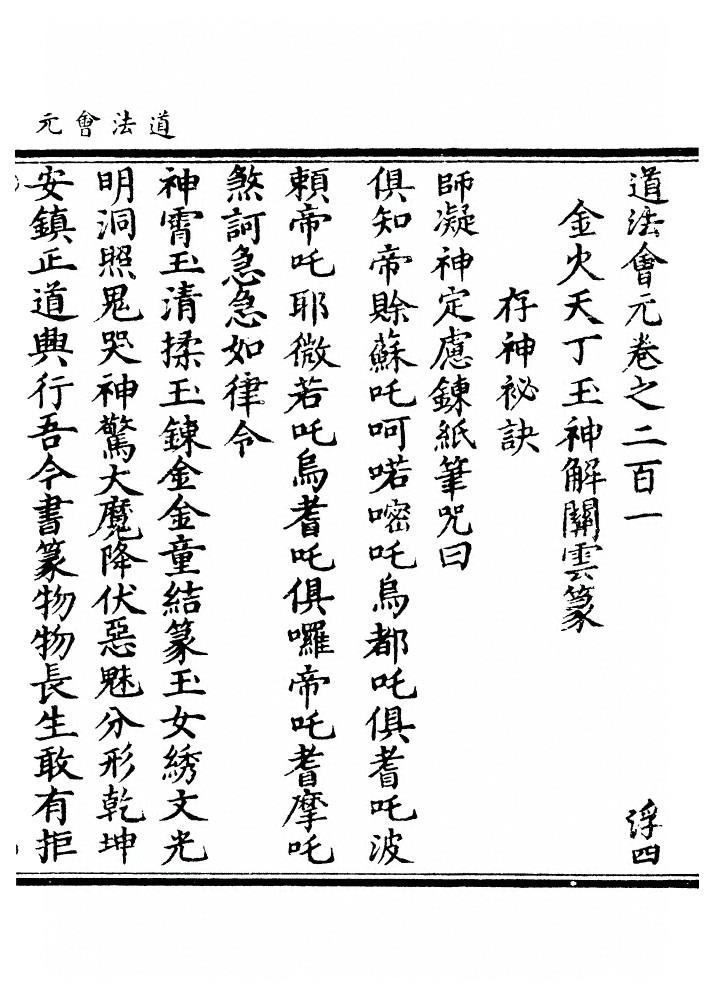 道法會元
道法會元卷之二百一 浮四
金火天丁玉神解關雲篆
存神祕訣
師凝神定慮鍊紙筆咒曰
俱知帝賒蘇吒呵喏𡫏吒烏都吒俱耆吒波
頼帝吒耶微若吒烏耆吒俱囉帝吒耆摩吒
煞訶急急如律令
神霄玉清揉玉鍊金金童結篆玉女綉文光
明洞照鬼哭神驚大魔降伏惡魅分形乾坤
安鎮正道興行吾今書篆物物長生敢有拒